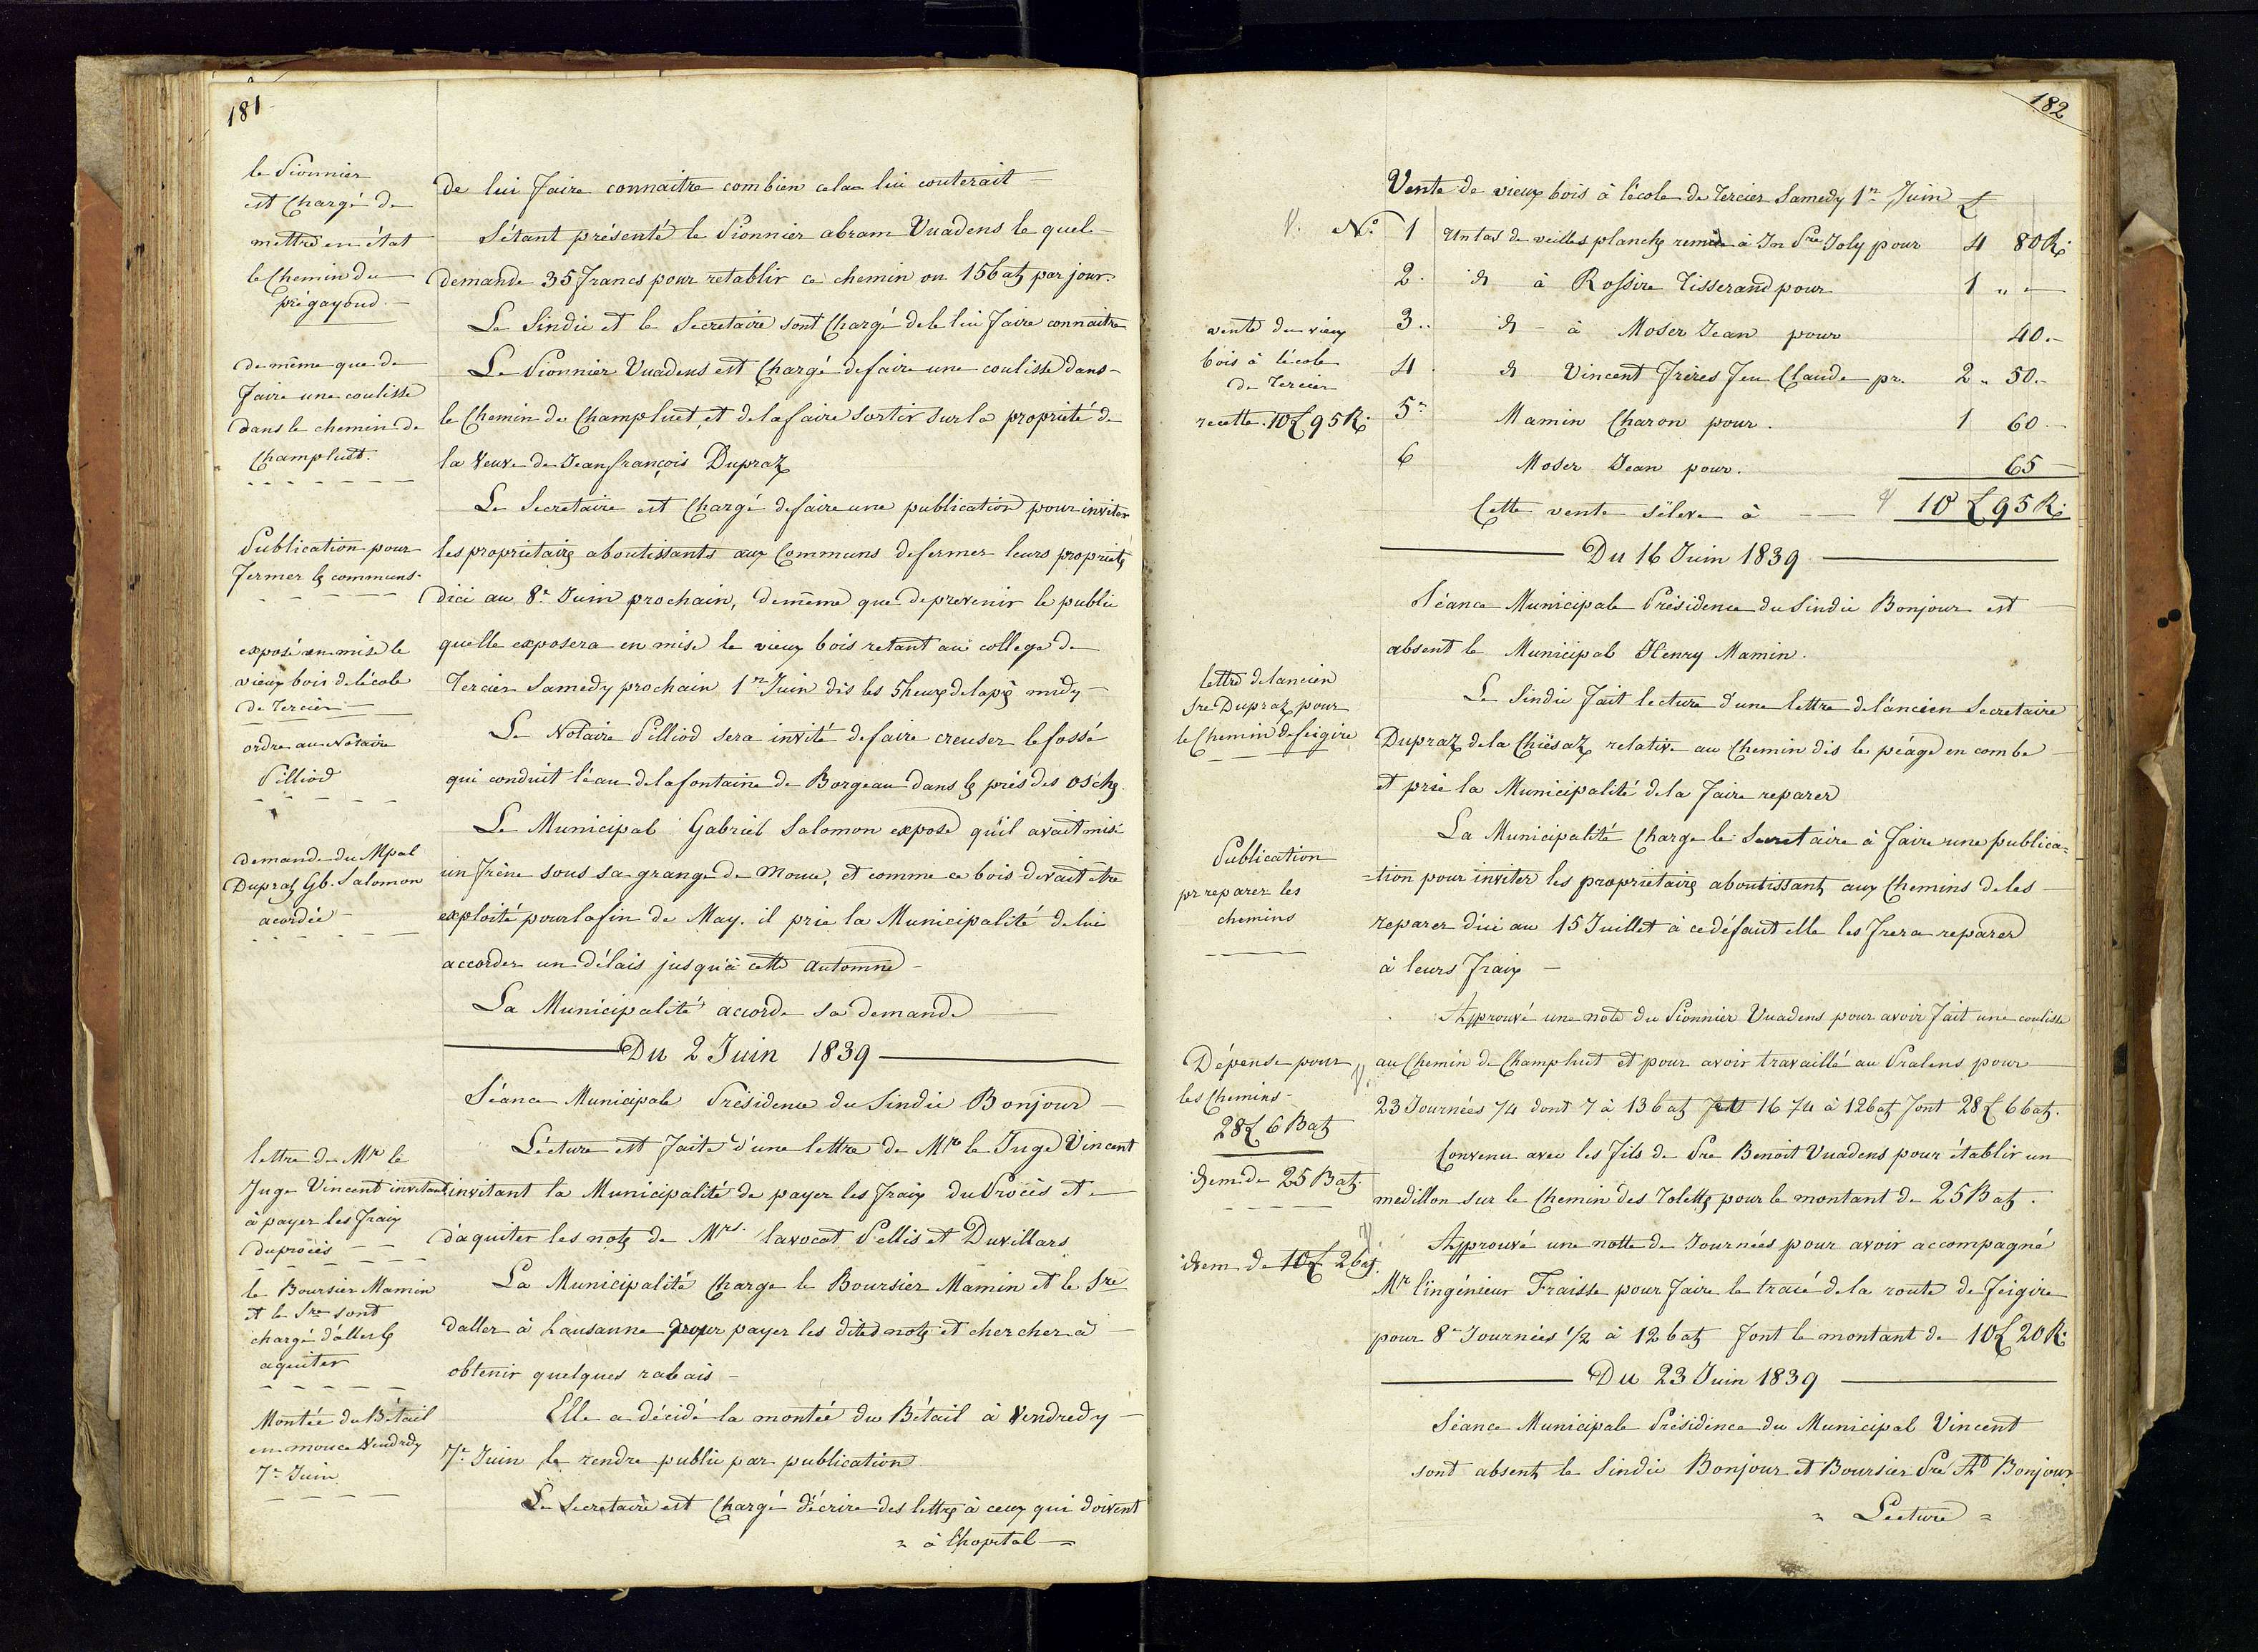 181
le Pionnier
est Chargé de
mettre en état
le Chemin du
prégayoud.
de même que de
faire une coulisse
dans le chemin de
Champluet.
Publication pour
fermer les communs
exposé en mise le
vieux bois de lécole
de Tercier
ordre au Notaire
Pilliod
demande du Mpal
Dupraz Gb. Salomon
acordée
lettre de Mr le
Juge Vincent invitant
à payer les fraix
du procès
le Boursier Mamin
et le Sre sont
chargé d'aller les
aquiter
Montée du Bétail
en mouce Vendredy
7e Juin
de lui faire connaitre combien cela lui couterait
S'étant présenté le Pionnier abram Vuadens le quel
demande 35 francs pour retablir ce chemin ou 15 batz par jour.
Le Sindic et le Secretaire sont Chargé de le lui faire connaitre
Le Pionnier Vuadens est Chargé de faire une coulisse dans
le Chemin de Champluet, et de la faire sortir sur la propriété de
la Veuve de Jean françois Dupraz
Le Secretaire est Chargé de faire une publication pour inviter
les proprietaires aboutissants aux Communs de fermer leurs propriétés
dici au 8e Juin prochain, demême que de prevenir le public
quelle exposera en mise le vieux bois retant au college de
Tercier Samedy prochain 1er Juin dès les 5 heures de laprès midy
Le Notaire Pilliod sera invité de faire creuser le fossé
qui conduit léau de la fontaine de Borgeau dans les prés des Osches
Le Municipal Gabriel Salomon expose qu'il avait misé
un frène sous sa grange de Mouce, et comme ce bois devait être
exploité pour la fin de May. il prie la Municipalité de lui
accorder un délais jusqu'à cette Automne
La Municipalité accorde sa demande
Du 2 Juin 1839
Séance Municipale Présidence du Sindic Bonjour
Lécture est faite d'une lettre de Mr le Juge Vincent
invitant la Municipalité de payer les fraix du Procès et
d'aquiter les notes de Mrs. lavocat Pellis et Duvillars
La Municipalité Charge le Boursier Mamin et le Sre
daller à Lausanne pour payer les dites notes et chercher à
obtenir quelques rabais
Elle a décidé la montée du Bétail à Vendredy
7e Juin le rendre public par publication
Le Secretaire est Chargé d'écrire des lettres à ceux qui doivent
à l'hopital
182
Vente de vieux bois à lécole de Tercier Samedy 1er Juin £
No. 1 Un tas de veilles planches remise à Jn Pre Joly pour 4 80 R.
2. di à Rossire Tisserand pour 1 "
3.. di à Moser Jean pour 40.
4. di Vincent frères feu Claude pr. 2 " 50.
5e Mamin Charon pour. 1 60
6 Moser Jean pour. 65
Cette vente s'éleve à 10 £ 95 R.
vente du vieux
bois à lécole
de Tercier
recette. 10 £ 95 R.
Du 16 Juin 1839
Séance Municipale Présidence du Sindic Bonjour est
absent le Municipal Henry Mamin.
Le Sindic fait lecture d'une lettre de l'ancien Secretaire
Dupraz de la Chiésaz relative au Chemin dès le péage en combe
et prie la Municipalité de la faire reparer
La Municipalité Charge le Secretaire à faire une publica=
=tion pour inviter les proprietaires aboutissants aux Chemins de les
reparer d'ici au 15 Juillet à ce défaut elle les frera reparer
à leurs fraix
Approuvé une note du Pionnier Vuadens pour avoir fait une coulisse
au Chemin de Champluet et pour avoir travaillé au Pralens pour
23 Journées 74 dont 7 à 13 batz 16 74 à 12 batz font 28 £ 6 batz.
Convenu avec les fils de Pre Benoit Vuadens pour établir un
medillon sur le Chemin des Tolettes pour le montant de 25 Batz.
Approuvé une notte de Journées pour avoir accompagné
Mr lingénieur Fraisse pour faire le tracé de la route de feigire
pour 8e Journées 1/2 à 12 batz font le montant de 10 £ 20 R.
Du 23 Juin 1839
Séance Municipale Présidence du Municipal Vincent
sont absents le Sindic Bonjour et Boursier Pre Ad Bonjour
Lecture
lettre de lancien
Sre Dupraz pour
le Chemin de feigire
Publication
pr reparer les
chemins
Dépense pour
les Chemins
28 £ 6 Batz
idem de 25 Batz.
idem de 10 £ 2 batz.